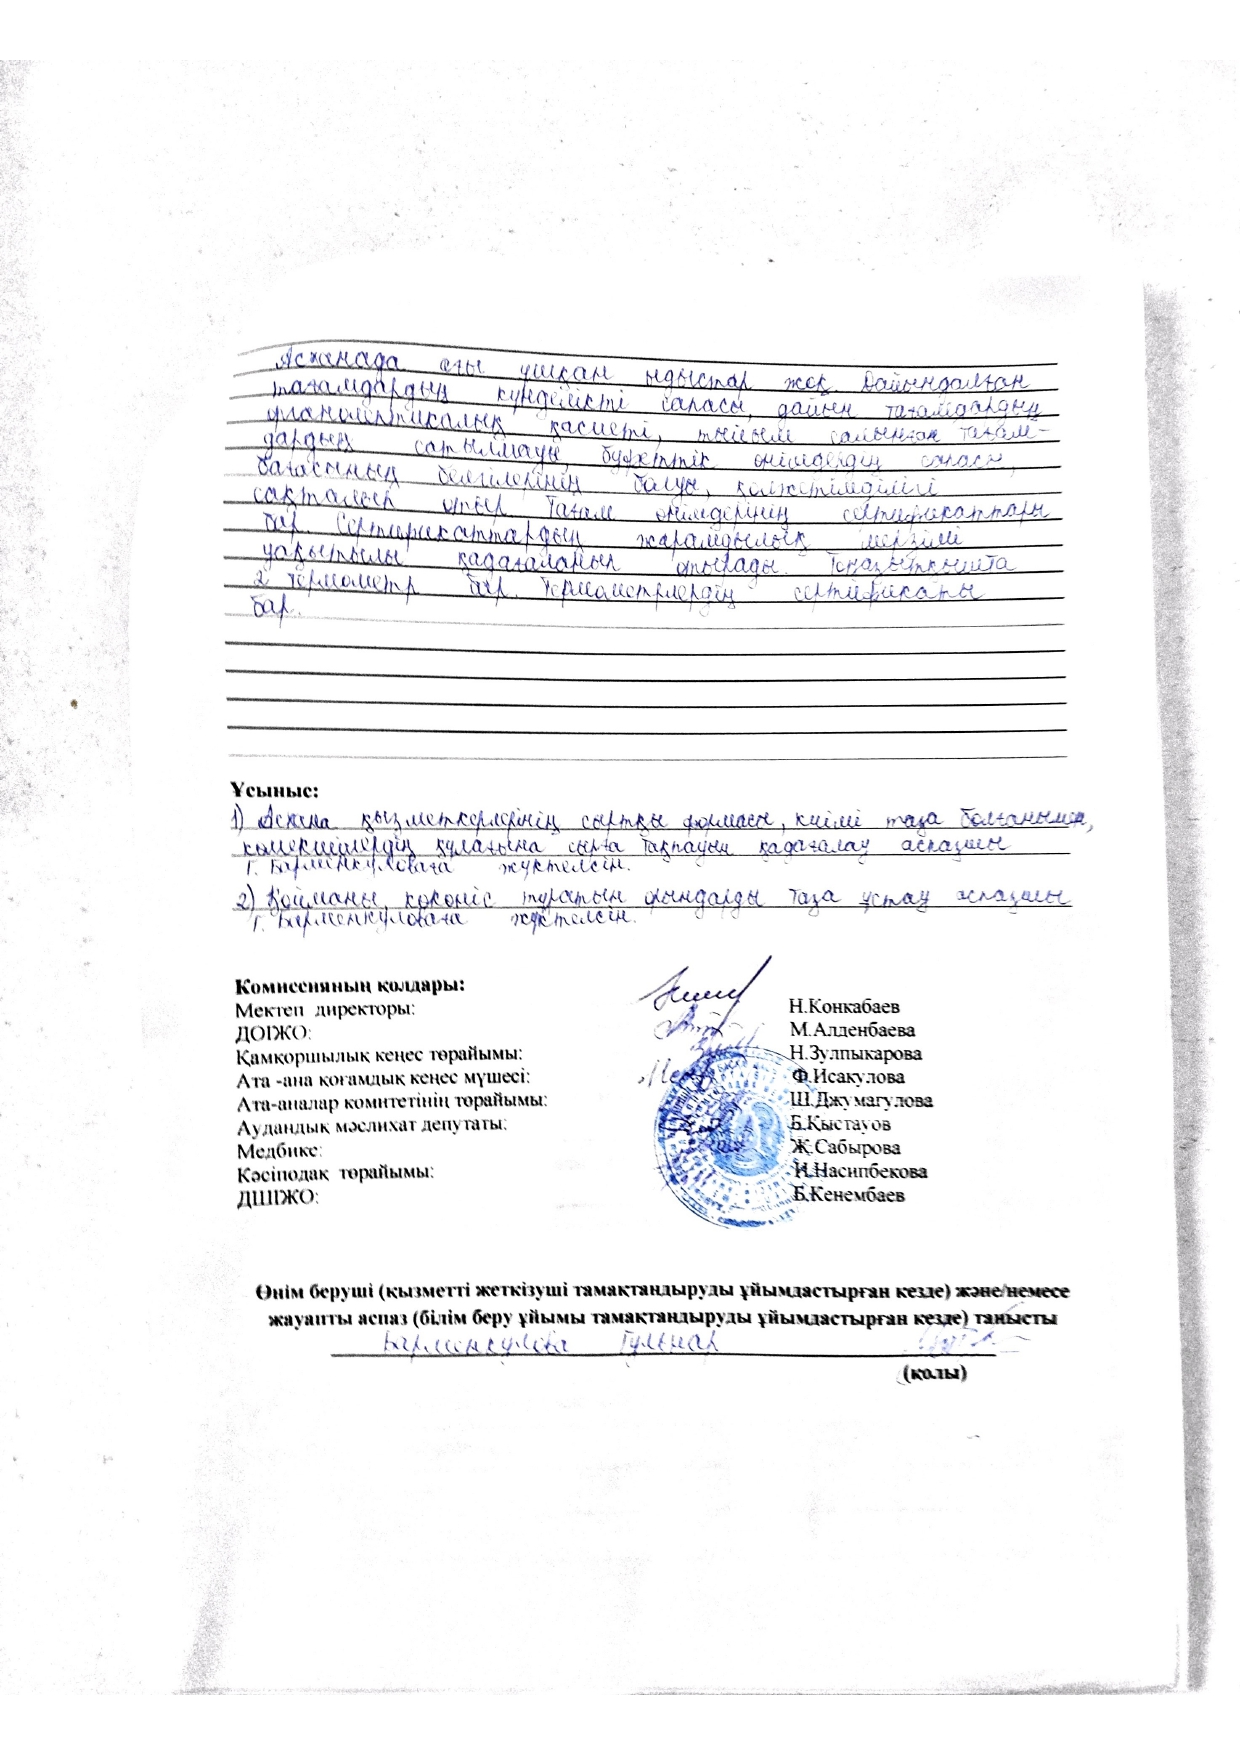 Асханада сғы ұшқан ыдыстар жоқ Дайындалған
тағамдардың күнделікті сапасы, дайын тағамдардың
органолептикалық қасиеті, тыйым салынған тағам-
дардың сатылмауы, буфеттік өнімдердің сапасы,
бағасының белгілерінің болуы, қолжетімділігі
сақталып отыр. Тағам өнімдерінің сертификаттары
бар. Сертификаттардың жарамдылық мерзімі
уақытылы қадағаланып отырады. Тоңазытқышта
2 термометр бар. Термометрлердің сертификаты
бар.
Ұсыныс:
1) Асхана қызметкерлерінің сыртқы формасы, киімі таза болғанымен,
көмекшілердің құлағына сырға тақпауын қадағалау аспазшы
Г. Барменкуловаға жүктелсін.
2) Қойманы, көкөніс тұратын орындарды таза ұстау аспазшы
Г. Барменкуловаға жүктелсін.
Комиссияның қолдары:
Мектеп директоры: Н.Конкабаев
ДОІЖО: М.Алденбаева
Қамқоршылық кеңес төрайымы: Н.Зулпыкарова
Ата -ана қоғамдық кеңес мүшесі: Ф.Исакулова
Ата-аналар комитетінің төрайымы: Ш.Джумагулова
Аудандық мәслихат депутаты: Б.Қыстауов
Медбике: Ж.Сабырова
Кәсіподақ төрайымы: И.Насипбекова
ДШІЖО: Б.Кенембаев
Өнім беруші (қызметті жеткізуші тамақтандыруды ұйымдастырған кезде) және/немесе
жауапты аспаз (білім беру ұйымы тамақтандыруды ұйымдастырған кезде) танысты
Барменкулова Гулнар
(қолы)